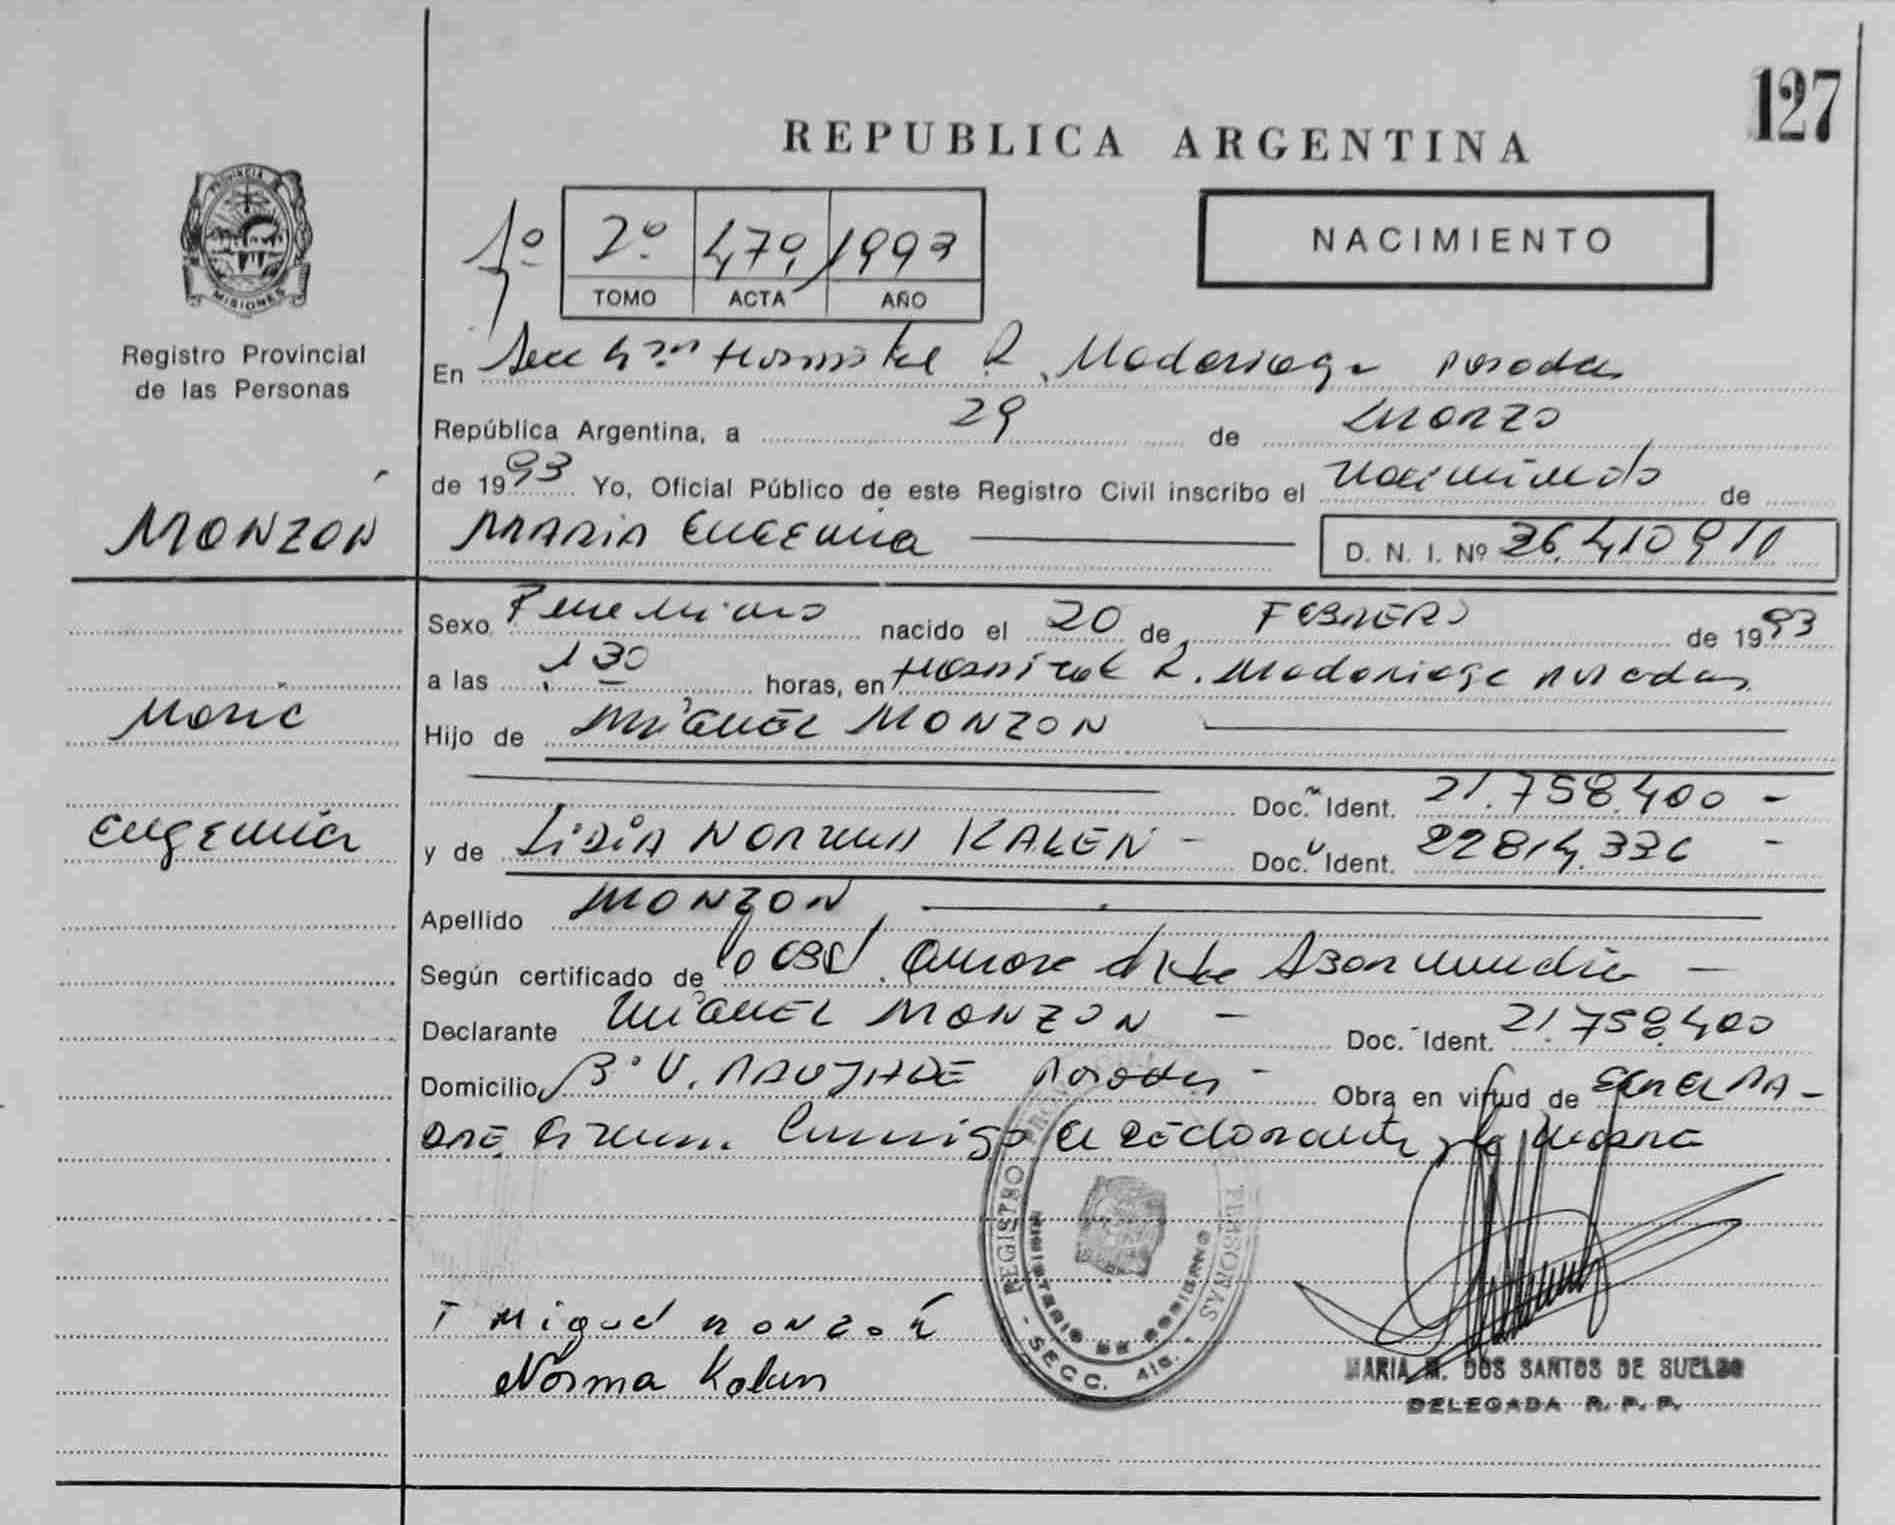 127
REPUBLICA ARGENTINA
PROVINCIA DE
MISIONES
Registro Provincial
de las Personas
1º 2º 479 1993
TOMO ACTA AÑO
NACIMIENTO
En Secc 4ta Hospital R. Madariaga Posadas
República Argentina, a 29 de Marzo
de 1993 Yo, Oficial Público de este Registro Civil inscribo el nacimiento de
MONZÓN
MARIA EUGENIA D. N. I. Nº 36.410.910
Sexo Femenino nacido el 20 de FEBRERO de 1993
a las 1 30 horas, en Hospital R. Madariaga Posadas
Maria
Hijo de MIGUEL MONZON
Doc. Ident. 21.758.400 -
Eugenia
y de LIDIA NORMA KALEN - Doc. Ident. 22814.336 -
Apellido MONZON
Según certificado de
Declarante MIGUEL MONZON - Doc. Ident. 21.758.400
Domicilio Bº V. Posadas - Obra en virtud de ser el PA-
DRE Firman conmigo el declarante y la madre
REGISTRO PROVINCIAL PERSONAS
MINISTERIO DE GOBIERNO
- SECC. 4ta. -
Miguel Monzón
Norma Kalen
MARIA M. DOS SANTOS DE SUELDO
DELEGADA R. P. P.